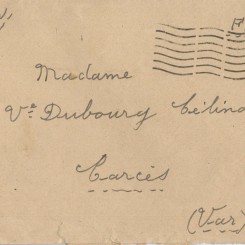 Madame
Vᵉ Dubourg Céline
Carcès
(Var)